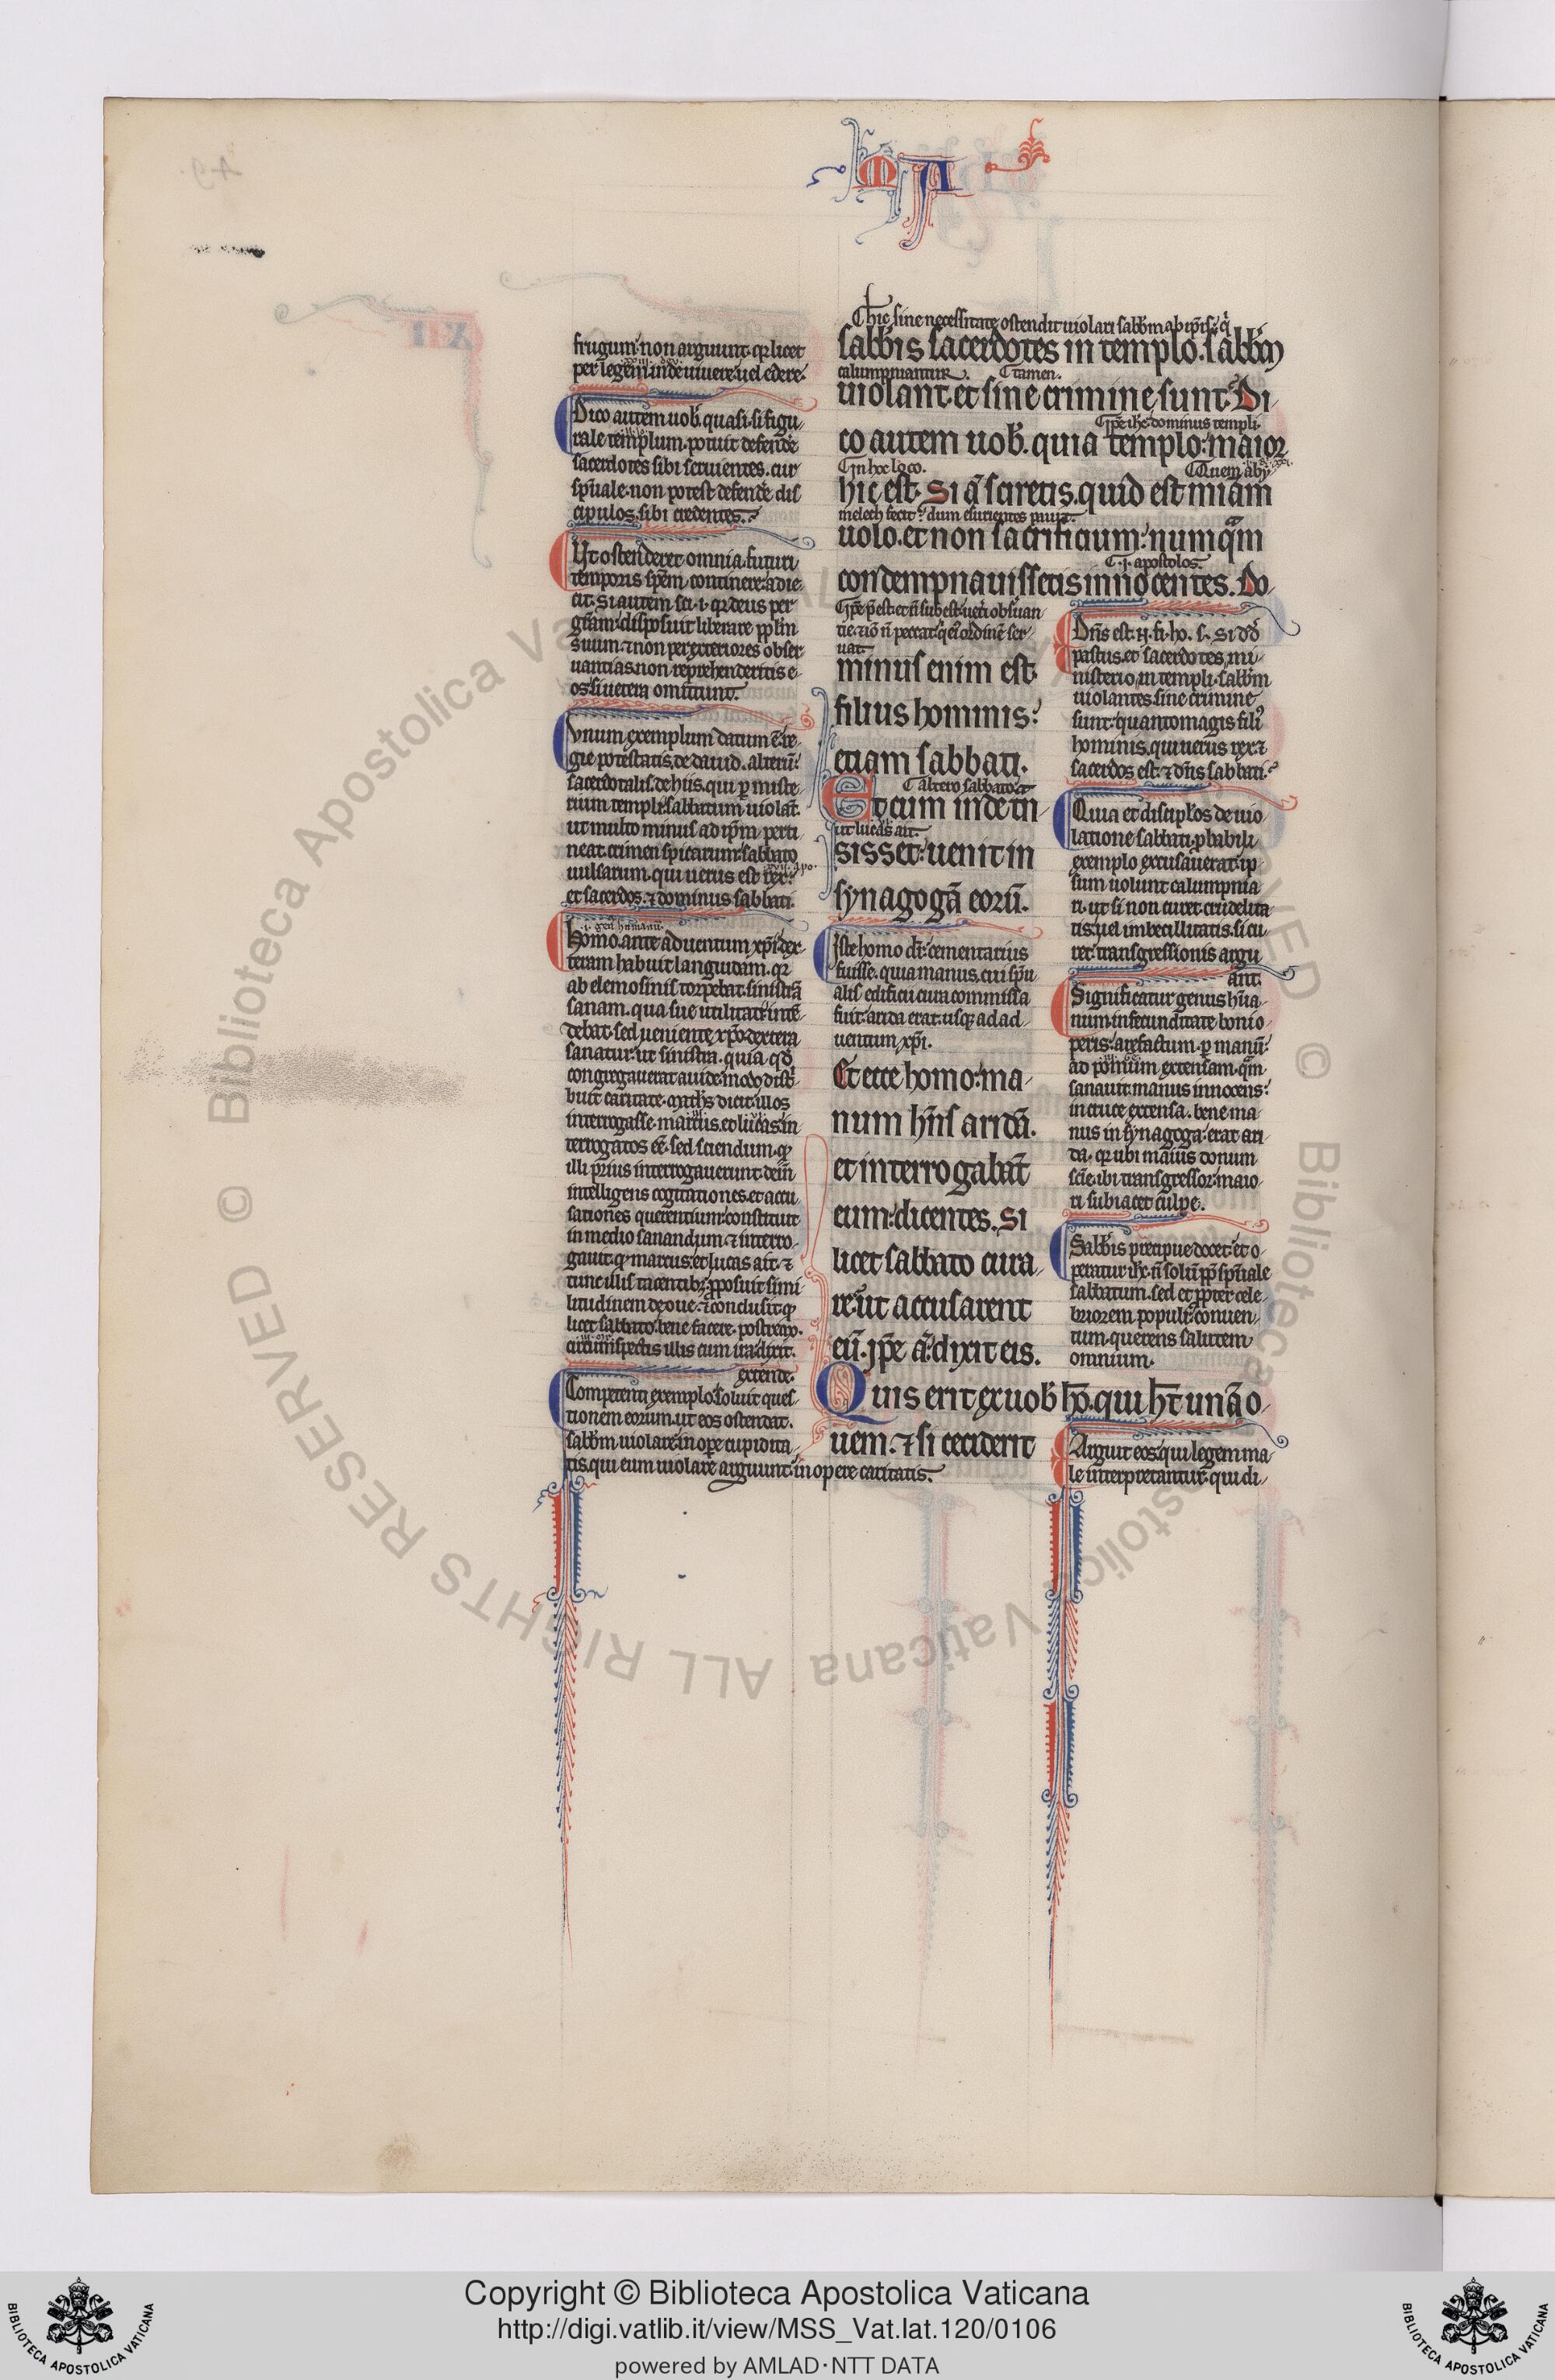 MA
frugum. non arguunt. qr licet
per legem inde uiuere. uel edere.
Dico autem uob. quasi. si figu/
rale templum. potuit defende
sacerdotes sibi seruientes. cur
spuale. non potest defende dis
cipulos. sibi credentes.
Vt ostenderet omnia. futuri
temporis spem continere. adie
cit. Si autem sci. i. qr deus per
gram disposuit liberare pplm
suum. ⁊ non per exteriores obser
uantias. non reprehenderitis e/
os. si uetera omittunt.
Vnum exemplum datum e. re/
gie potestatis. de dauid. alteru.
sacerdotalis. de hiis. qui p miste/
rium templi. sabbatum uiolat.
ut multo minus ad ipm perti
neat. crimen spicarum sabbato
uulsarum. qui uerus est rex.
et sacerdos. ⁊ dominus sabbati.
.i. gen humanu.
Homo. ante aduentum xpi. dex/
teram habuit languidam. qr
ab elemosinis torpebat. sinistra
sanam. qua sue utilitati inte/
debat. sed ueniente xpo. dextera
sanatur. ut sinistra. quia. qd
congregauerat auide. modo distri
buit caritate. Maths dicit. illos
interrogasse. marcus. et lucas. in
terrogatos ee. sed sciendum. q
illi prius interrogauerunt. dein
intelligens cogitationes. et accu
sationes querentium. constituit
in medio sanandum. ⁊ interro/
gauit. q marcus. et lucas ait. ⁊
tunc illis tacentib; pposuit simi
litudinem de oue. ⁊ conclusit. q
licet sabbato. bene facere. postremo.
circumspectis illis cum ira. dixit.
extende.
Competenti exemplo. soluit ques/
tionem eorum. ut eos ostendat.
sabbm uiolare. in ope cupidita/
tis. qui eum uiolare arguunt. in opere caritatis.
hic sine necessitate ostendit uiolari sabbm ab ipsis. q
sabbis sacerdotes in templo. sabbm
calumpniantur. tamen.
uiolant. et sine crimine sunt. Di/
ipse ihc dominus templi.
co autem uob. quia templo. maior
In hoc loco. Quem aby
hic est. Si a sciretis. quid est miam
melech fecit. dum esurientes pauit.
uolo. et non sacrificium. numqam
.i. apostolos.
condempnauissetis innocentes. Do/
minus enim est.
filius hominis.
etiam sabbati.
altero sabbato
Et cum inde tn/
ut lucas ait.
sisset. uenit in
synagoga eoru.
Iste homo dr. cementarius
fuisse. quia manus. cui spu
alis edificii cura commissa
fuit. arida erat. usq; ad ad/
uentum xpi.
Et ecce homo. ma/
num hns arida.
et interrogabat
eum. dicentes. Si
licet sabbato cura/
re. ut accusarent
eu. Ipse a. dixit eis.
Quis erit ex uob ho. qui ht una o/
uem. ⁊ si ceciderit
Dns est. N. fi. ho. s. Si dd
pastus. et sacerdotes. mi/
nisterio. in templi. sabbm
uiolantes. sine crimine
sunt. quanto magis fili
hominis. qui uerus rex. ⁊
sacerdos est. ⁊ dns sabbati.
Quia et discipulos de uio/
latione sabbati. pbabili
exemplo excusauerat. ip/
sum uolunt calumpnia
ri. ut si non curet. crudelita
tis. uel imbecillitatis. si cu/
ret. transgressionis argu
ant.
Significatur genus hua/
num. infecunditate boni o/
peris. arefactum. p manu.
ad pomum extensam. qm
sanauit. manus innocens.
in cruce extensa. bene ma/
nus in synagoga. erat ari/
da. qr ubi maius donum
scie. ibi transgressor. maio/
ri subiacet culpe.
Sabbis precipue docet. et o/
peratur ihc. n solu pp spuale
sabbatum. sed et ppter cele
briorem populi. conuen/
tum. querens salutem
omnium.
Arguit eos. qui legem ma/
le interpretantur. qui di/
Copyright © Biblioteca Apostolica Vaticana
http://digi.vatlib.it/view/MSS_Vat.lat.120/0106
powered by AMLAD·NTT DATA
BIBLIOTECA APOSTOLICA VATICANA
BIBLIOTECA APOSTOLICA VATICANA
© Biblioteca Apostolica Vaticana ALL RIGHTS RESERVED